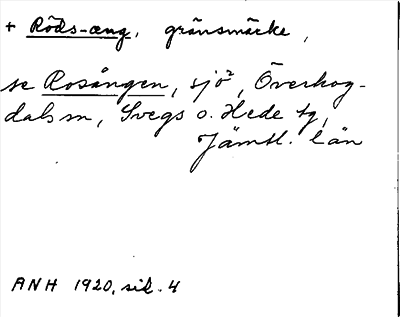 + Röds-æng, gränsmärke,
se Rosången, sjö², Överhog-
dals sn, Svegs o. Hede tg,
Jämtl. län
ANH 1920, sid. 4